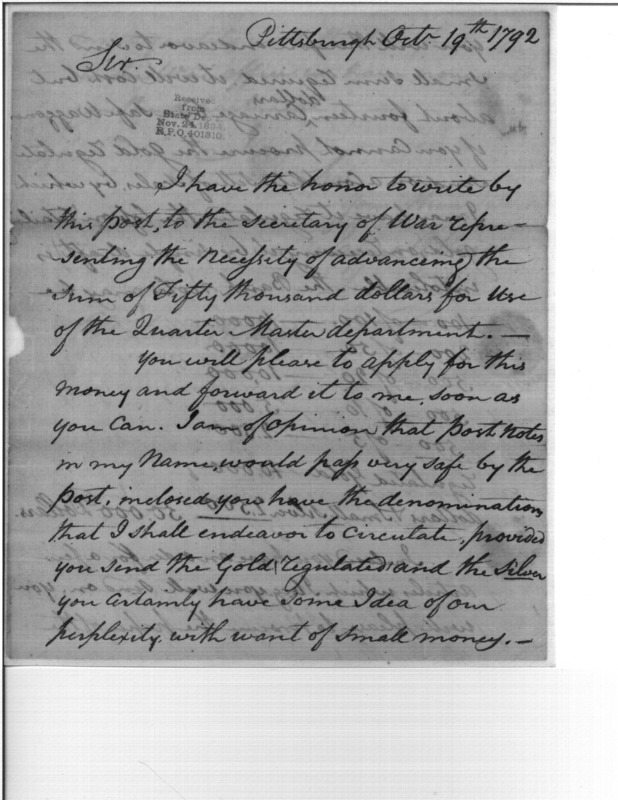 Pittsburgh Octr 19th 1792
Sir.
Received
from
State De
Nov. 24, 1894,
R.P.O. 401810.
I have the honor to write by
this post, to the secretary of War repre-
senting the necessity of advanceing the
sum of Fifty thousand dollars for use
of the Quarter Master department. —
you will please to apply for this
money and forward it to me, soon as
you can. I am of opinion that post notes
in my Name, would pass very safe by the
post, inclosed you have the denominations
that I shall endeavor to circulate, provided
you send the Gold (regulated) and the Silver
you certainly have some Idea of our
perplexity, with want of small money. —